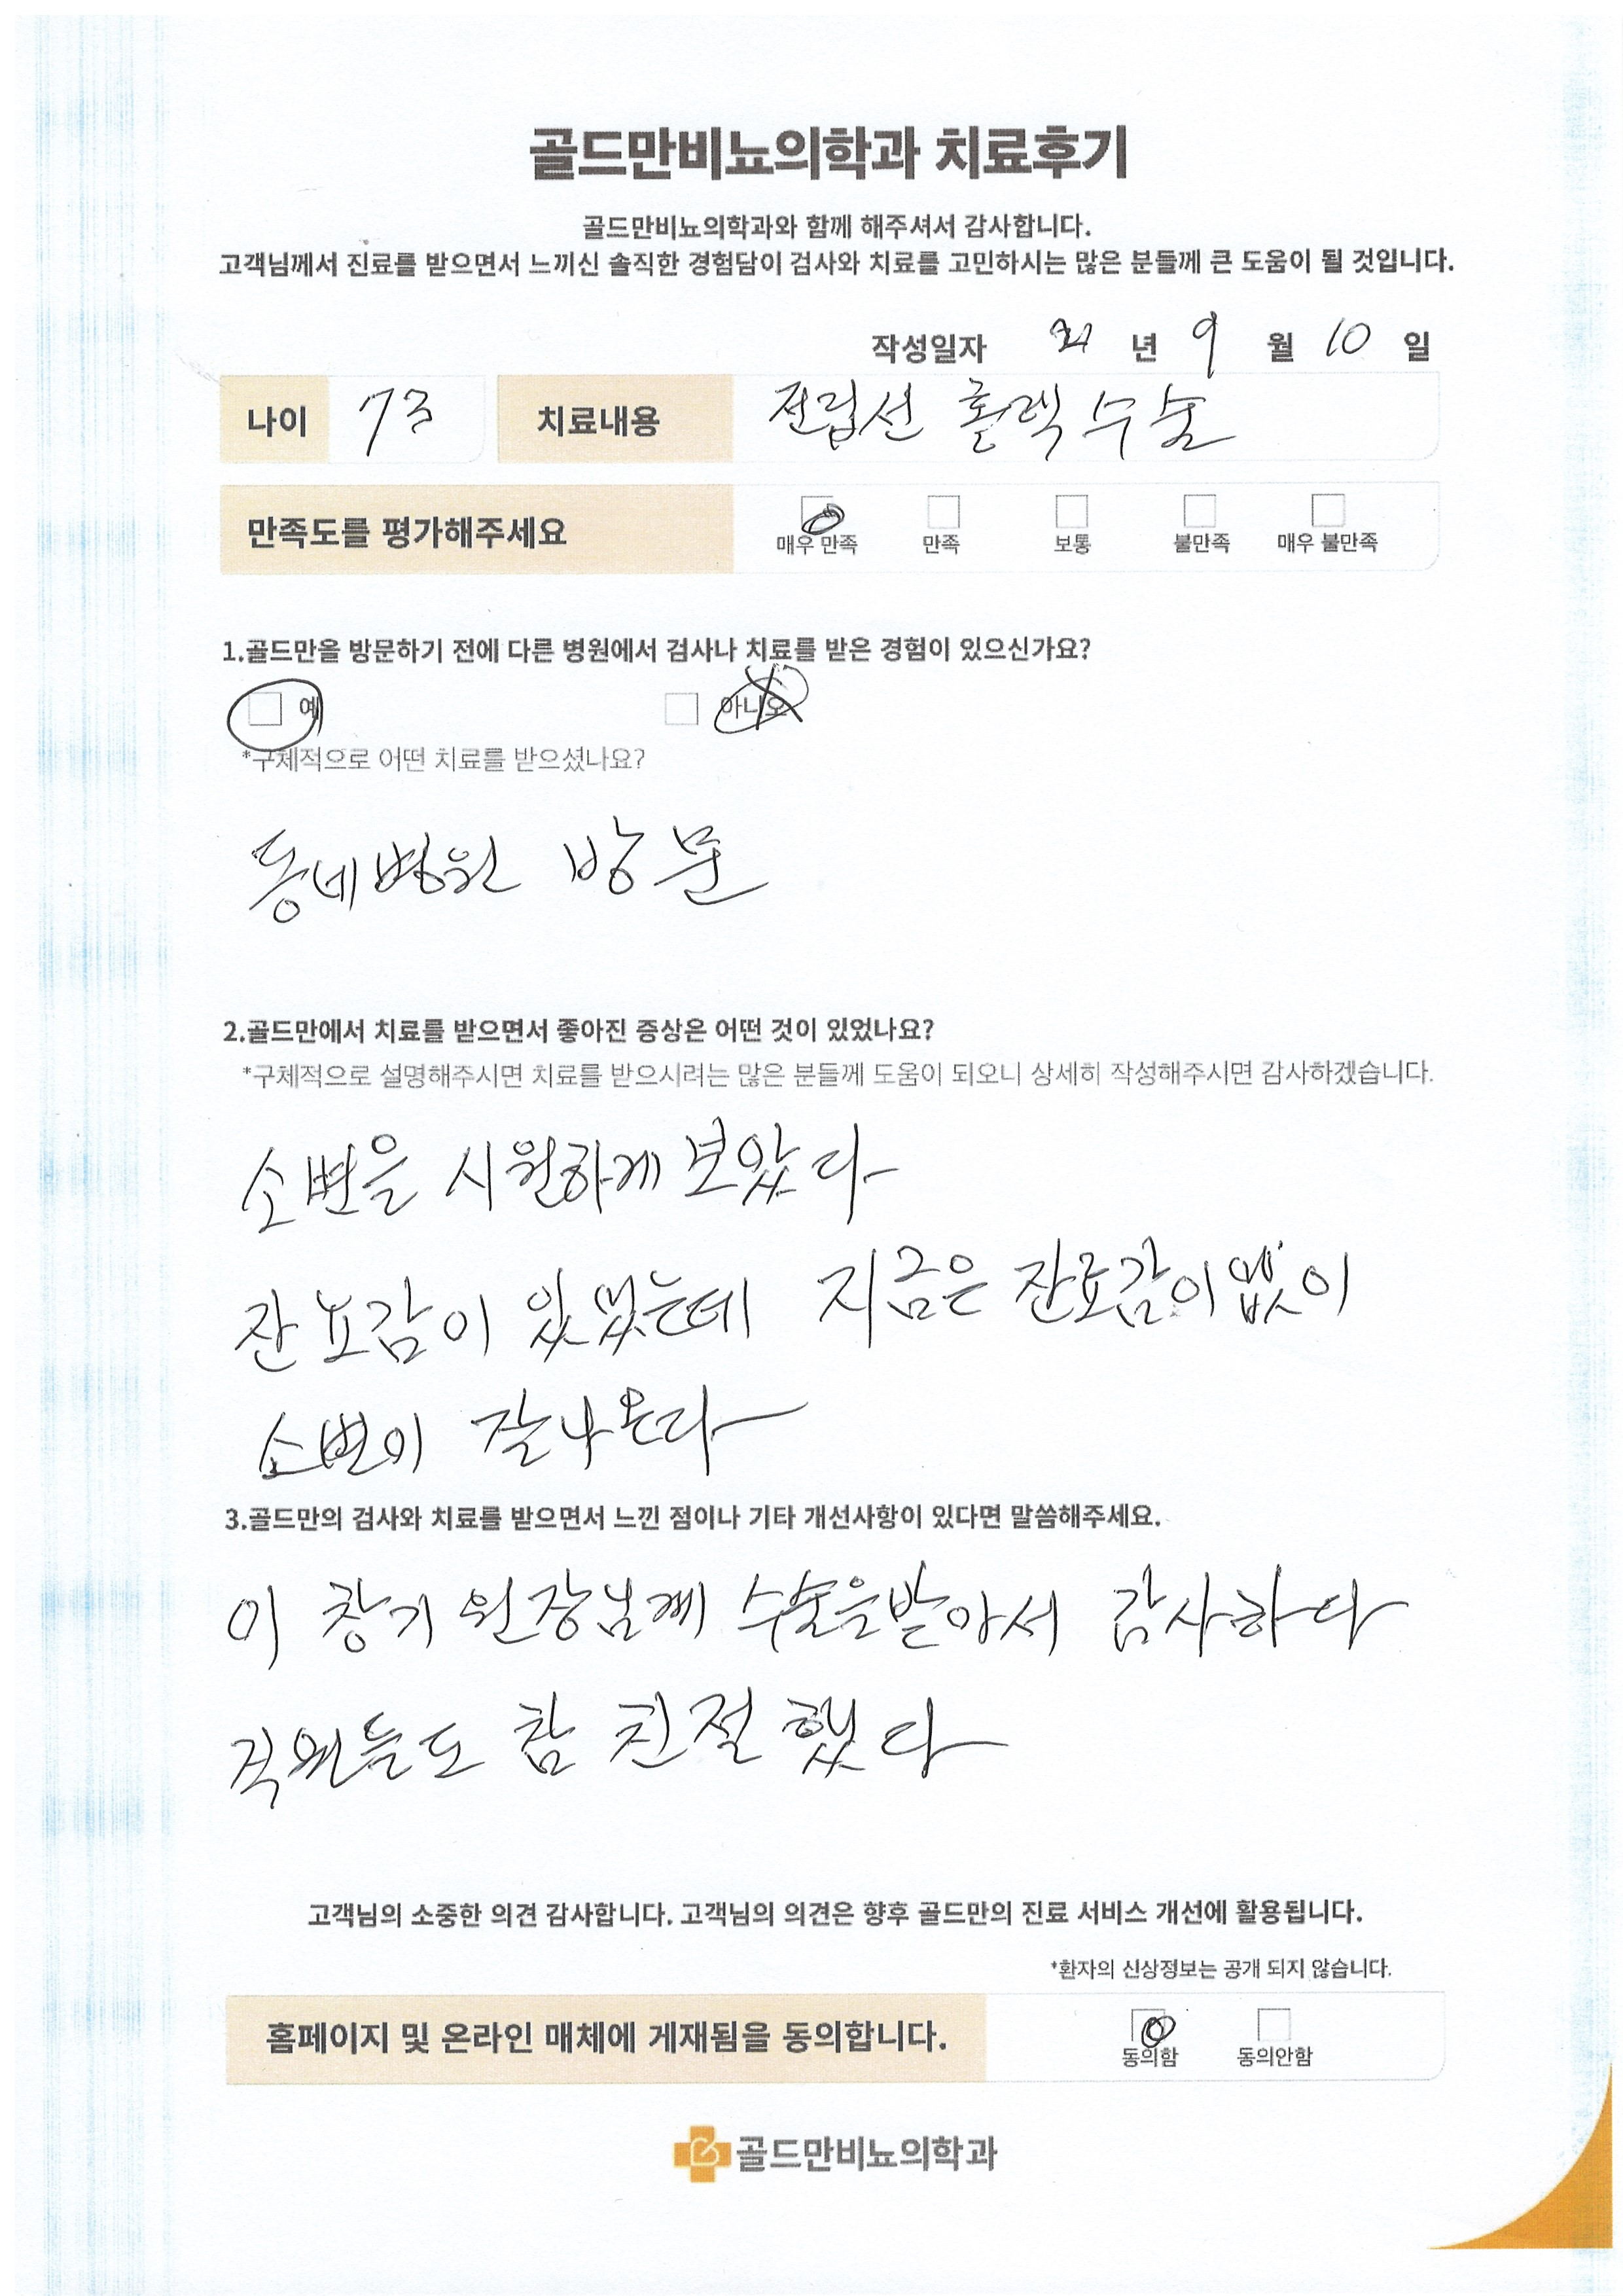 골드만비뇨의학과 치료후기
골드만비뇨의학과와 함께 해주셔서 감사합니다.
고객님께서 진료를 받으면서 느끼신 솔직한 경험담이 검사와 치료를 고민하시는 많은 분들께 큰 도움이 될 것입니다.
작성일자 21 년 9 월 10 일
나이 73 치료내용 전립선 홀렙 수술
만족도를 평가해주세요 매우 만족 만족 보통 불만족 매우 불만족
1.골드만을 방문하기 전에 다른 병원에서 검사나 치료를 받은 경험이 있으신가요?
예 아니오
*구체적으로 어떤 치료를 받으셨나요?
동네병원 방문
2.골드만에서 치료를 받으면서 좋아진 증상은 어떤 것이 있었나요?
*구체적으로 설명해주시면 치료를 받으시려는 많은 분들께 도움이 되오니 상세히 작성해주시면 감사하겠습니다.
소변을 시원하게 보았다
잔뇨감이 있었는데 지금은 잔뇨감이 없이
소변이 잘나온다
3.골드만의 검사와 치료를 받으면서 느낀 점이나 기타 개선사항이 있다면 말씀해주세요.
이 창기 원장님께 수술을받아서 감사하다
직원들도 참 친절했다
고객님의 소중한 의견 감사합니다. 고객님의 의견은 향후 골드만의 진료 서비스 개선에 활용됩니다.
*환자의 신상정보는 공개 되지 않습니다.
홈페이지 및 온라인 매체에 게재됨을 동의합니다. 동의함 동의안함
골드만비뇨의학과